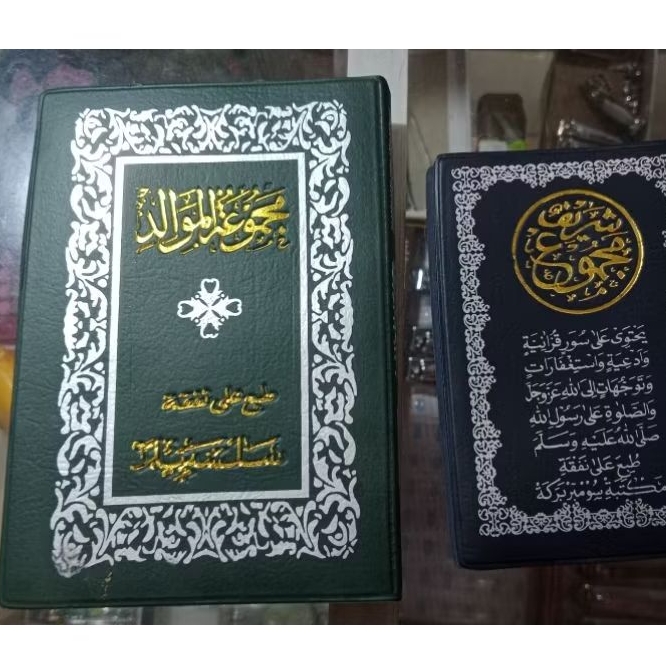 مجموعة الموالد
طبع على نفقة
مجموع شريف
يَحْتَوِى عَلَى سُوَرٍ قُرْآنِيَّةٍ
وَاَدْعِيَةٍ وَاسْتِغْفَارَاتٍ
وَتَوَجُّهَاتٍ اِلَى اللهِ عَزَّوَجَلَّ
وَالصَّلَوةِ عَلَى رَسُوْلِ اللهِ
صَلَّى اللهُ عَلَيْهِ وَسَلَّمَ
طُبِعَ عَلَى نَفَقَةِ
مَكْتَبَةِ سُومْبَرْ بَرَكَةْ